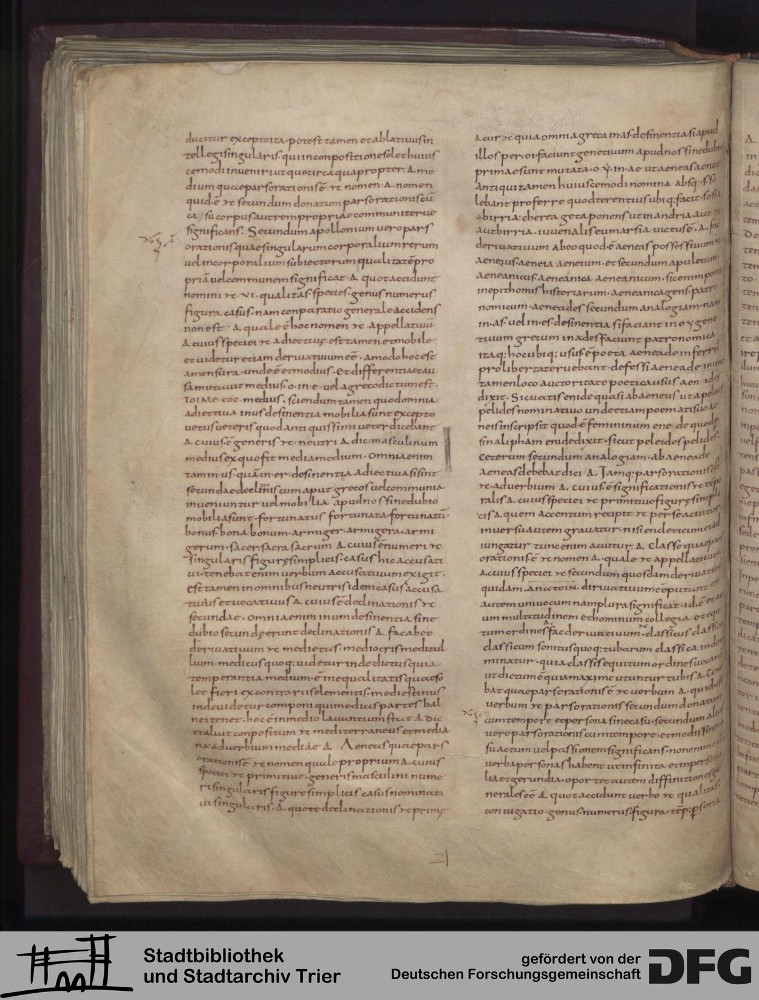 ducitur excepto ita · potest tamen et ablatiuus in
tellegi singularis · qui in conpositione solet huius
cemodi inueniri ut quocirca quapropter · Δ · me
dium quae pars orationis ē rc nomen · Δ · nomen
quid · ē rc secundum donatum pars orationis cū
ca su corpus aut rem proprie communiterue
significans · Secundum apollonium uero pars
orationis quae singularum corporalium rerum
uel incorporalium subiectorum qualitatē pro
priā uel communem significat · Δ quot accidunt
nomini rc · VI · qualitas · species · genus numerus
figura casus · nam conparatio generale accidens
non est · Δ quale ē hoc nomen rc appellatiuū
Δ cuius speciei rc adiectiuę · est tamen et mobile
et uidetur etiam deriuatiuum eē · Amodo hoc est
a mensura · unde ē et modius · Et differentiae cau
sa mutauit medius · o · in · e · uel a greco dictum est ·
medius · sciendum tamen quod omnia
adiectiua in us desinentia mobilia sunt excepto
uetus ueteris quod antiquissimi ueter dicebant
Δ cuius ē generis rc neutri Δ dic masculinum
medius ex quo fit media medium · Omnia enim
tam in us quā in er desinentia adiectiua si sint
secundae declinis cum aput grecos uel communia
inueniuntur uel mobilia apud nos sine dubio
mobilia sunt · fortunatus fortunata · fortunatū ·
bonus · bona bonum · armiger · armigera · armi
gerum · sacer sacra sacrum Δ cuius numeri rc
singularis figurę simplicis · casus hic accusati
ui · tenebat enim uerbum accusatiuum exigit ·
Est tamen in omnibus neutris idem casus accusa
tiuus et uocatiuus Δ cuius ē declinationis rc
secundae · Omnia enim in um desinentia sine
dubio secundę erunt declinationis Δ fac ab eo
deriuatiuum rc medietas · mediocris meditul
lium · medicus quoq; uidetur inde dictus quia
temperantia medium · ē inequalitatis quae so
let fieri ex contrariis elementis · mediastinus
inde uidetur componi qui medius partes bal
nei tenet · hoc ē in medio lauantum stat Δ dic
et aliut conpositum rc mediterraneus et media
na aduerbium mediae Δ Aeneas quae pars
orationis ē rc nomen quale proprium Δ cuius
speciei rc primitiue · generis masculini nume
ri singularis figurę simplicis casus nominati
ui singularis · Δ quote declinationis rc primę
Δ cur rc quia omnia greca in as desinentia si apud
illos per · oi · faciunt genetiuum apud nos sine dubio
primae sunt mutata · o
antiqui tamen huiuscemodi nomina absq; s so
lebant proferre quod terentius ubiq; facit · sosia
abirria · cherta geta ponens ut in andria aut
aut birria · iuuenalis eu marsia uictus ē · Δ fac
deriuatiuum ab eo quod ē aeneas possessiuum rc
aeneius · aeneia aeneium · et secundum apuleium
aeneanicus · aeneanica aeneanicum · sic enim ponit
in epithomis historiarum · aeneanica gens · patro
nomicum · aenedes secundum analogiam · nam
in · as · uel in · es · desinentia si faciant in o y gene
tiuum grecum in ades faciunt patronomica
itaq; hoc ubiq; usus ē poeta aeneade in ferrum
pro libertate ruebant · defessi aeneade in uno
tamen loco auctoritate poetica usus aen ide
dixit · Sic uatis enide quasi ab aeneus ut a peleus
pelides nominatiuo unde etiam poematis uo ae
neis inscripsit quod ē femininum ene de quod
sin aliptham enide dixit · sicut peleides pelides ·
Ceterum secundum analogiam · ab aeneade
aeneas debebat dici Δ Jamq; pars orationis ē
rc aduerbium Δ cuius ē significationis rc tēpo
ralis Δ cuius speciei rc primitiue figurę simpli
cis Δ quem accentum recipit rc per se acutus
in uersu autem grauatur · nisi en clericum ei ad
iungatur tunc enim acuitur Δ classe quae pars
orationis ē rc nomen Δ · quale rc appellatiuum
Δ cuius speciei rc secundum quosdam deriuatiue
autem uniuocum nam plura significat · id · ē et na
uium multitudinem et hominum collegia · et equi
tum ordines fac deriuatiuum · classicus classica
classicum sonitusquoq; tubarum classica inde no
minatur · quia classis equitum ordines uocant
ut dictum ē quia maxime utuntur tubis Δ Tene
bat quae pars orationis ē rc uerbum Δ quid est
uerbum rc pars orationis secundum donatum
cum tempore et persona sine casu · secundum alios
uero pars orationis cum tempore et modis sine ca
su actum uel passionem significans · non enim omnia
uerba personas habent ut infinita et inpersona
lia et gerundia · oportet autem diffinitionem ge
neralē eē Δ quot accidunt uerbo rc qualitas ·
coniugatio · genus · numerus · figura · tēp; p̄sona
Stadtbibliothek
und Stadtarchiv Trier
gefördert von der
Deutschen Forschungsgemeinschaft
DFG